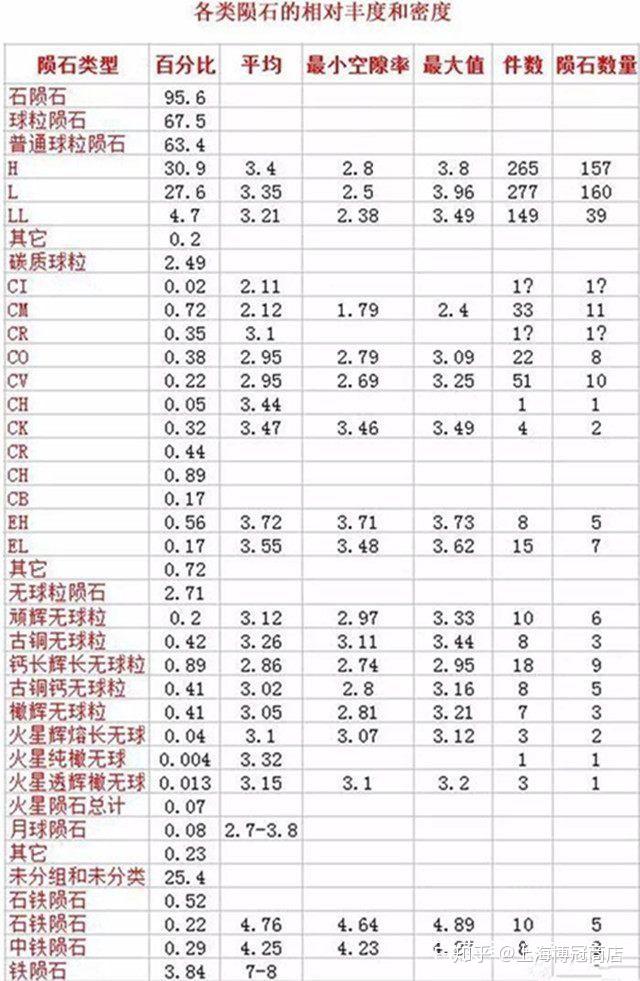 各类陨石的相对丰度和密度
陨石类型 百分比 平均 最小空隙率 最大值 件数 陨石数量
石陨石 95.6
球粒陨石 67.5
普通球粒陨石 63.4
H 30.9 3.4 2.8 3.8 265 157
L 27.6 3.35 2.5 3.96 277 160
LL 4.7 3.21 2.38 3.49 149 39
其它 0.2
碳质球粒 2.49
CI 0.02 2.11 1? 1?
CM 0.72 2.12 1.79 2.4 33 11
CR 0.35 3.1 1? 1?
CO 0.38 2.95 2.79 3.09 22 8
CV 0.22 2.95 2.69 3.25 51 10
CH 0.05 3.44 1 1
CK 0.32 3.47 3.46 3.49 4 2
CR 0.44
CH 0.89
CB 0.17
EH 0.56 3.72 3.71 3.73 8 5
EL 0.17 3.55 3.48 3.62 15 7
其它 0.72
无球粒陨石 2.71
顽辉无球粒 0.2 3.12 2.97 3.33 10 6
古铜无球粒 0.42 3.26 3.11 3.44 8 3
钙长辉长无球粒 0.89 2.86 2.74 2.95 18 9
古铜钙无球粒 0.41 3.02 2.8 3.16 8 5
橄辉无球粒 0.41 3.05 2.81 3.21 7 3
火星辉熔长无球 0.04 3.1 3.07 3.12 3 2
火星纯橄无球 0.004 3.32 1 1
火星透辉橄无球 0.013 3.15 3.1 3.2 3 1
火星陨石总计 0.07
月球陨石 0.08 2.7-3.8
其它 0.23
未分组和未分类 25.4
石铁陨石 0.52
石铁陨石 0.22 4.76 4.64 4.89 10 5
中铁陨石 0.29 4.25 4.23
铁陨石 3.84 7-8
知乎 @上海博冠商店